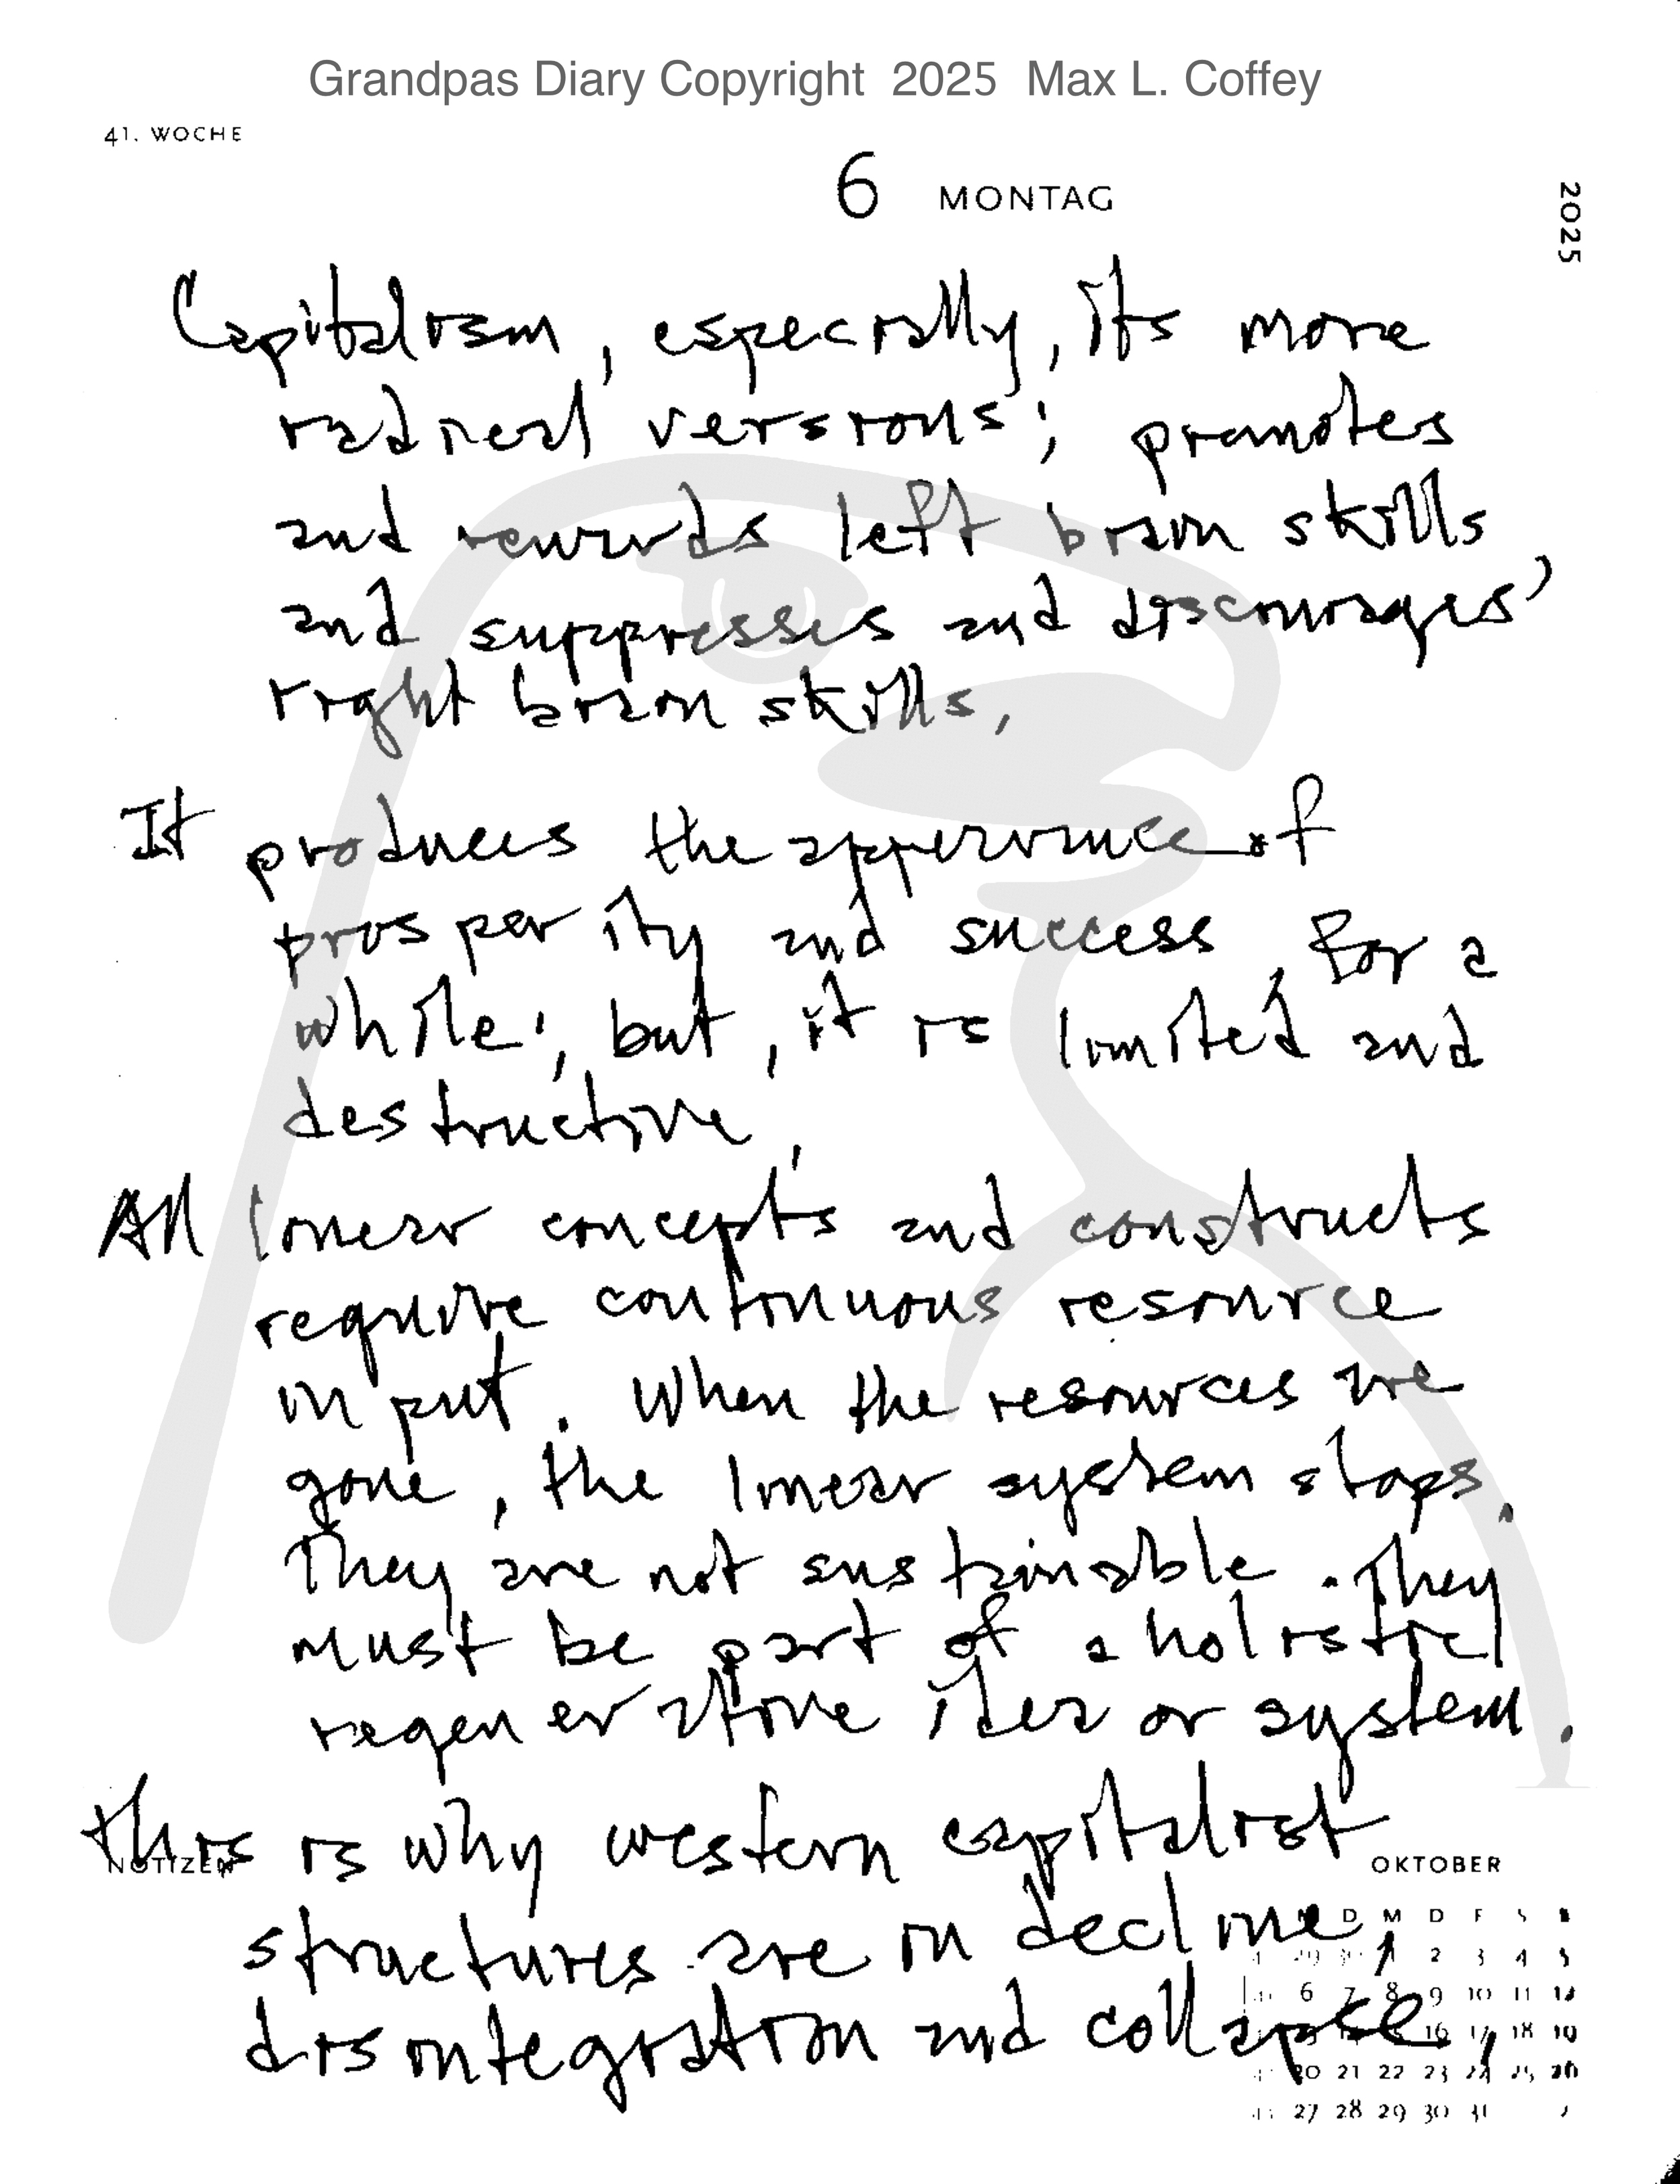 Grandpas Diary Copyright 2025 Max L. Coffey
41. WOCHE
6 MONTAG
2025
Capitalism, especially, its more
radical versions; promotes
and rewards left brain skills,
and suppresses and discourages
right brain skills,
It produces the appearance of
prosperity and success, for a
while; but, it is limited and
destructive,
All linear concepts and constructs
require continuous resource
in put. When the resources are
gone, the linear system stops.
They are not sustainable. They
must be part of a holistic
regenerative idea or system.
This is why western capitalist
structures are in decline,
disintegration and collapse,
NOTIZEN
OKTOBER
D M D F S
2 3 4 5
6 7 8 9 10 11 12
16 17 18 19
20 21 22 23 24 25 26
27 28 29 30 31